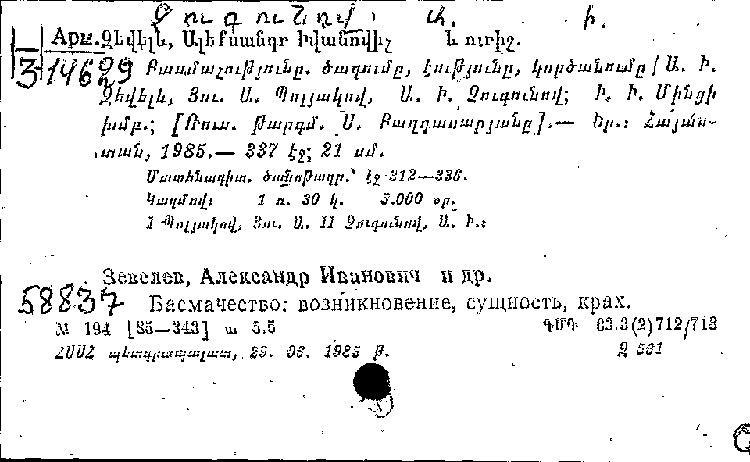 Չուգունով Ա. Ի.
Арм. Զևելև, Ալեքսանդր Իվանովիչ և ուրիշ.
3 14629 Բասմաչությունը. ծագումը, էությունը, կործանումը / Ա. Ի.
Զևելև, Յու. Ա. Պոլյակով, Ա. Ի. Չուգունով; Ի. Ի. Մինցի
խմբ.; [Ռուս. թարգմ. Ս. Բաղդասարյանը].— Եր.: Հայաս-
տան, 1985.— 337 էջ; 21 սմ.
Մատենագիտ. ծանոթագր.՝ էջ 312—336.
Կազմով: 1 ռ. 30 կ. 5.000 օր.
I Պոլյակով, Յու. Ա. II Չուգունով, Ա. Ի.:
Зевелев, Александр Иванович и др.
58837 Басмачество: возникновение, сущность, крах.
№ 194 [85—343] ա 5.5 ԳՄԴ 63.3(2)712/713
ՀՍՍՀ պետգրապալատ, 29. 06. 1985 թ. Զ 561